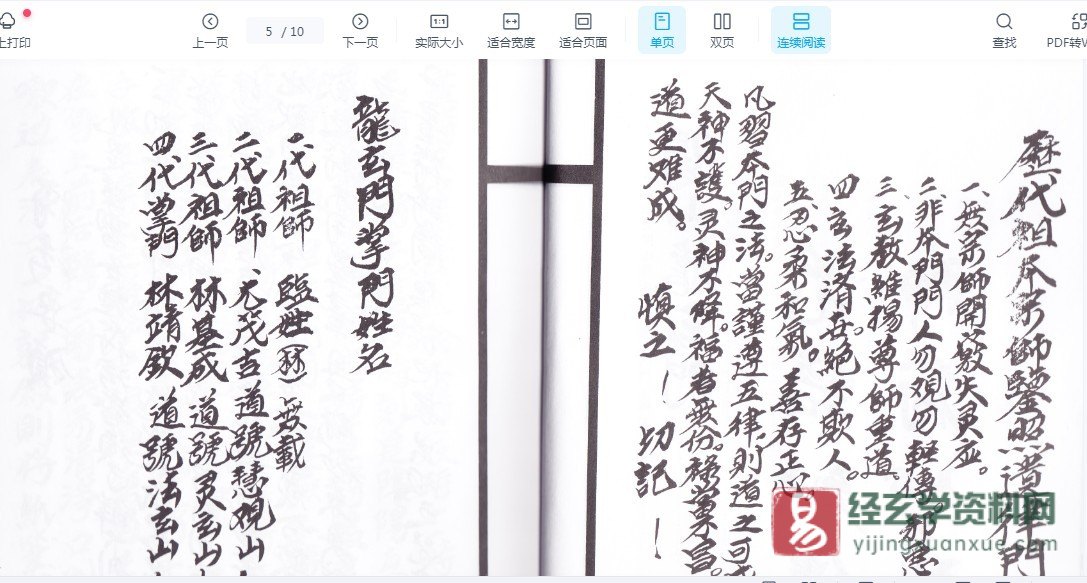 上打印
上一页
5 / 10
下一页
1:1
实际大小
适合宽度
适合页面
单页
双页
连续阅读
查找
PDF转W
歷代祖本宗師鑒照譜律門
一、無荣師開敎失灵应。
二、非本門門人勿观勿輕傳邪惡
三、玄敎雖揚尊師重道。
四、玄法済世絕不欺人。
五、忍柔和氣。善存正心
凡習本門之法。當謹遵五律,則道之可成
天神不護。灵神不降。福者無份。祿菓宫。
道更难成。 慎之！切記！
龍玄門掌門姓名
一代祖師 臨姓(林)無載
二代祖師 元茂吉道號慧观山
三代祖師 林基成 道號灵玄山
四代掌門 林靖欽 道號法玄山
易
经玄学资料网
yijingxuanxue.com